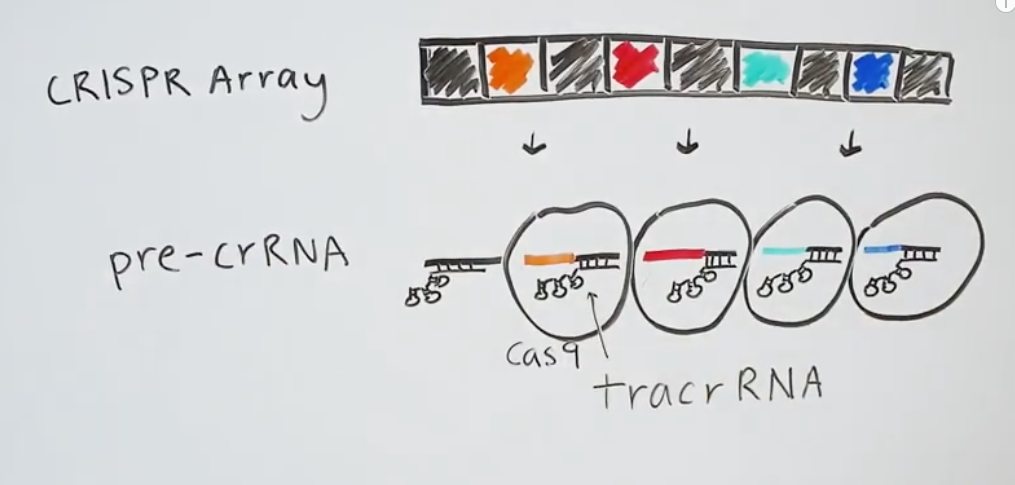 CRISPR Array
pre-crRNA
Cas9
tracrRNA